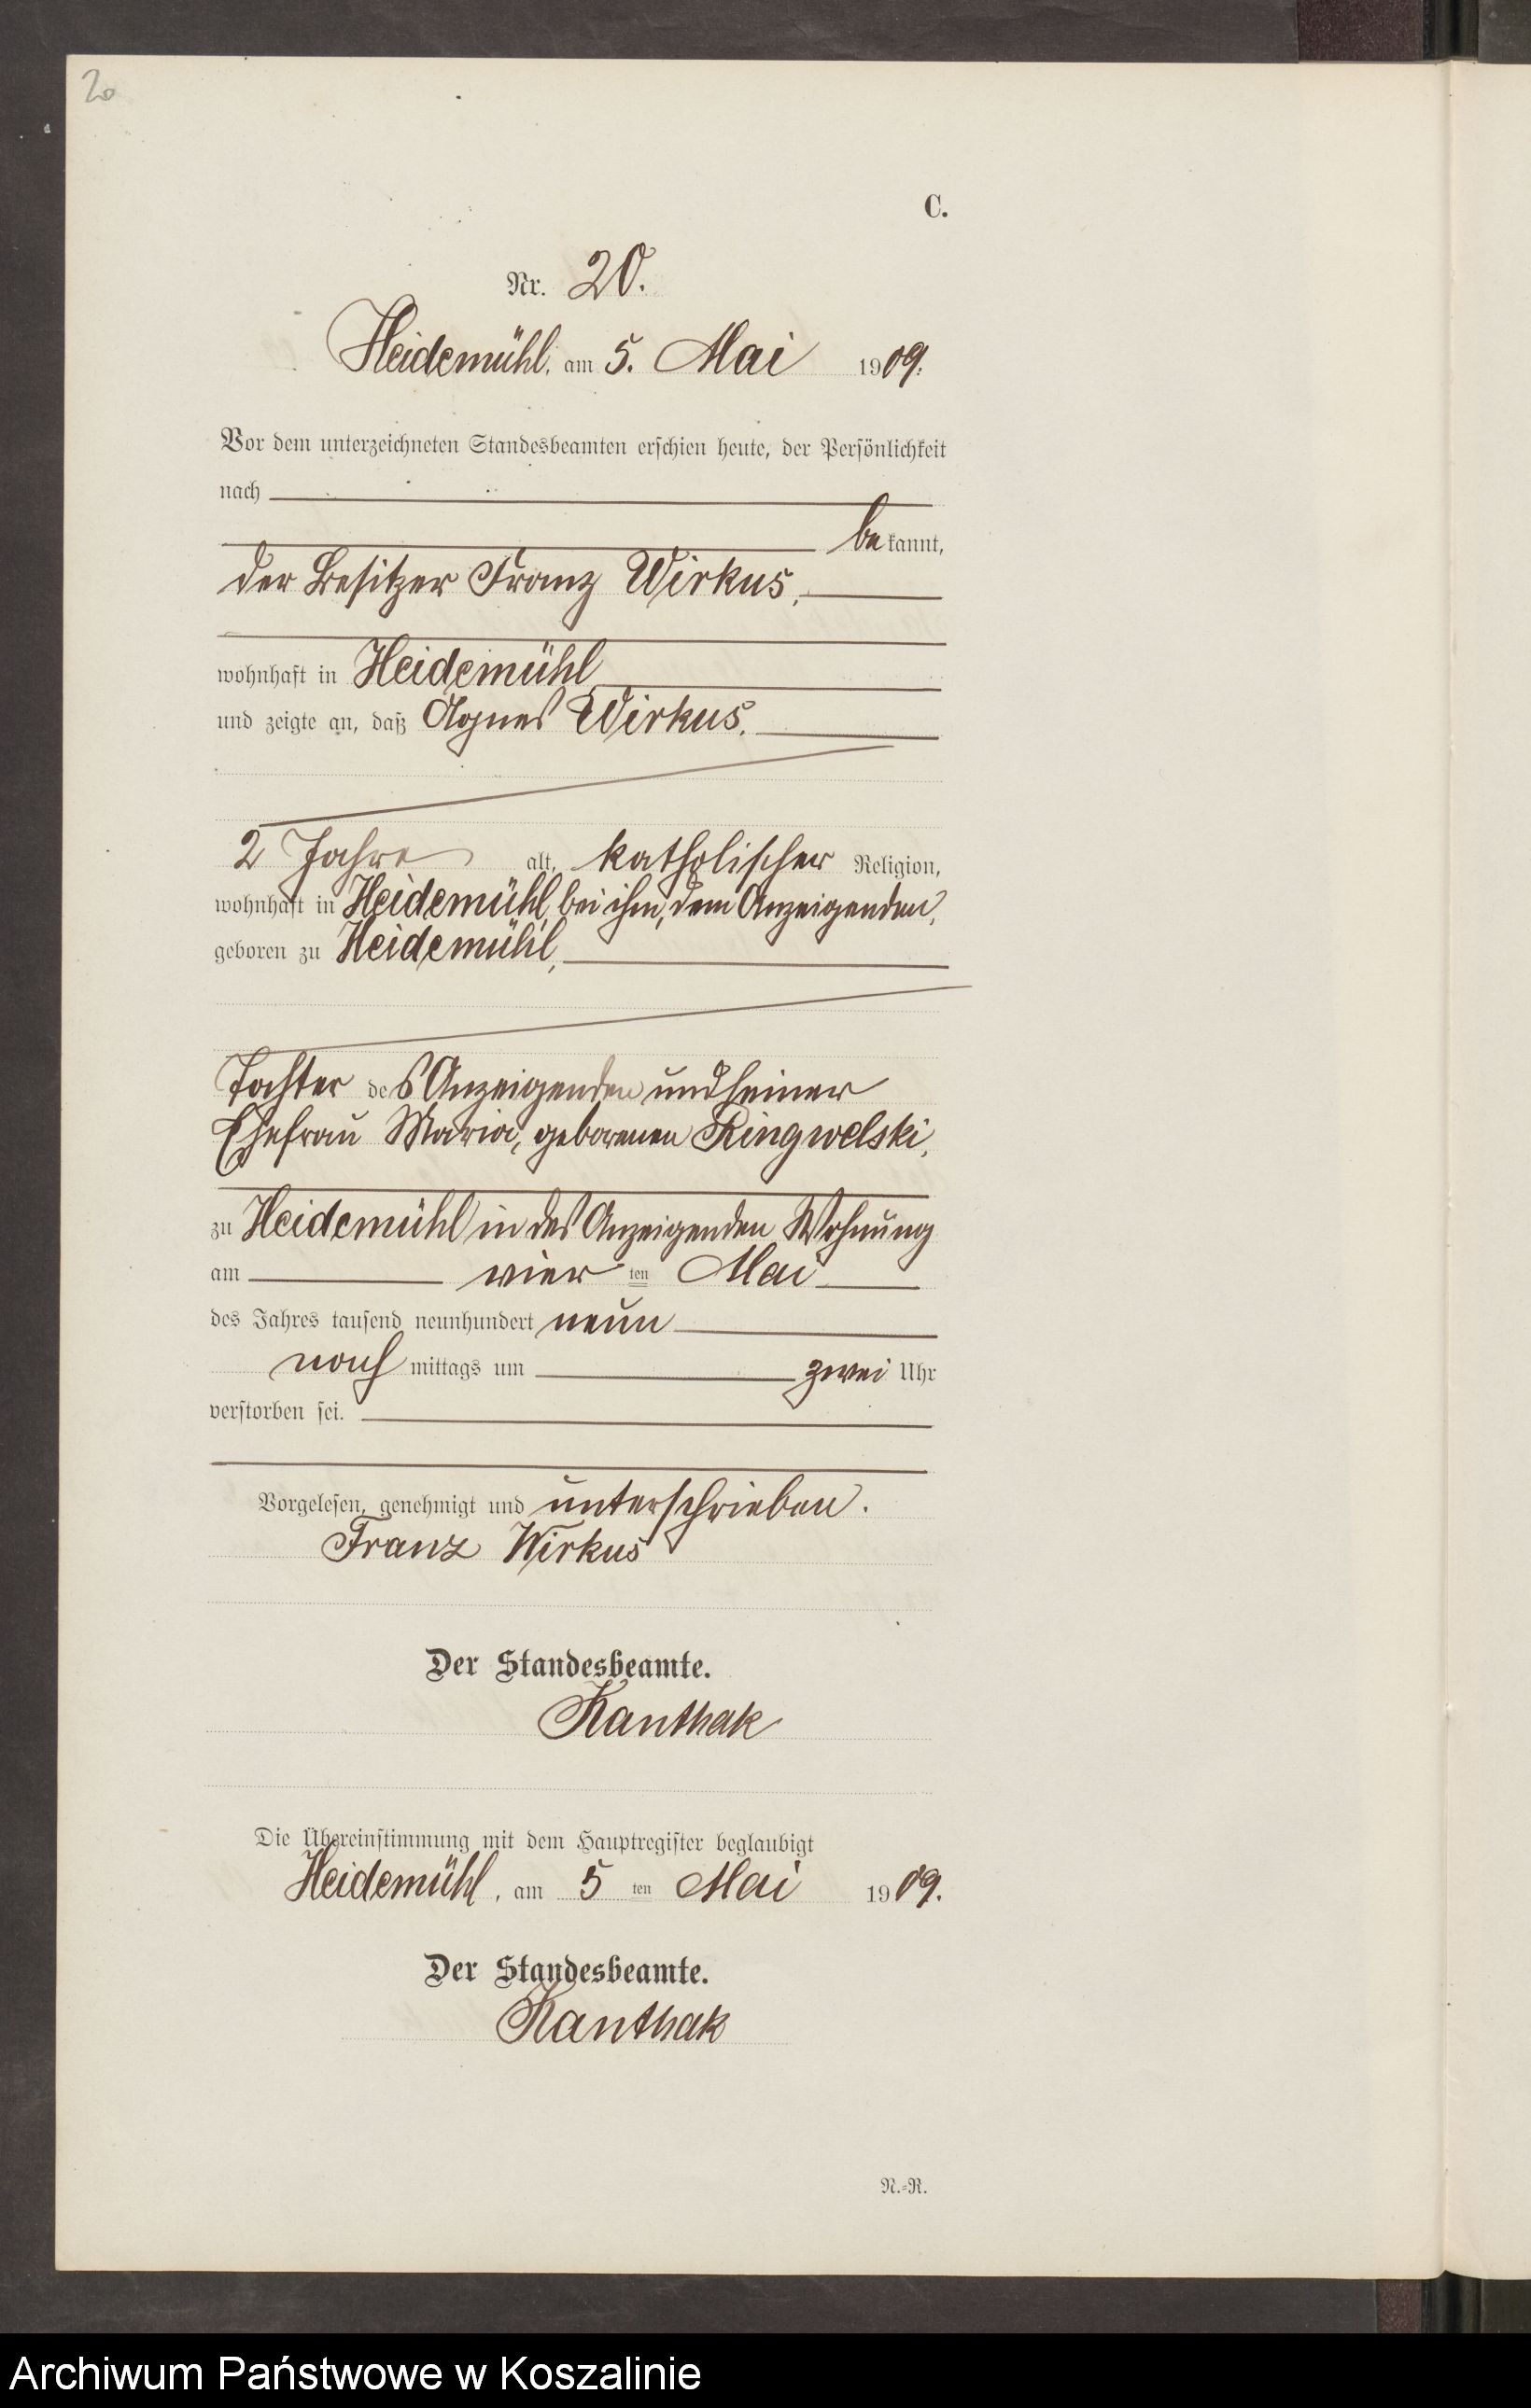 20
C.
Nr. 20.
Heidemühl, am 5. Mai 1909.
Vor dem unterzeichneten Standesbeamten erschien heute, der Persönlichkeit
nach
bekannt,
der Besitzer Franz Wirkus,
wohnhaft in Heidemühl
und zeigte an, daß Agnes Wirkus,
2 Jahre alt, katholischer Religion,
wohnhaft in Heidemühl, bei ihm, dem Anzeigenden,
geboren zu Heidemühl,
Tochter des Anzeigenden und seiner
Ehefrau Maria, geborenen Ringwelski,
zu Heidemühl in des Anzeigenden Wohnung
am vier ten Mai
des Jahres tausend neunhundert neun
nach mittags um zwei Uhr
verstorben sei.
Vorgelesen, genehmigt und unterschrieben.
Franz Wirkus
Der Standesbeamte.
Kanthak
Die Übereinstimmung mit dem Hauptregister beglaubigt
Heidemühl, am 5 ten Mai 1909.
Der Standesbeamte.
Kanthak
N.-R.
Archiwum Państwowe w Koszalinie